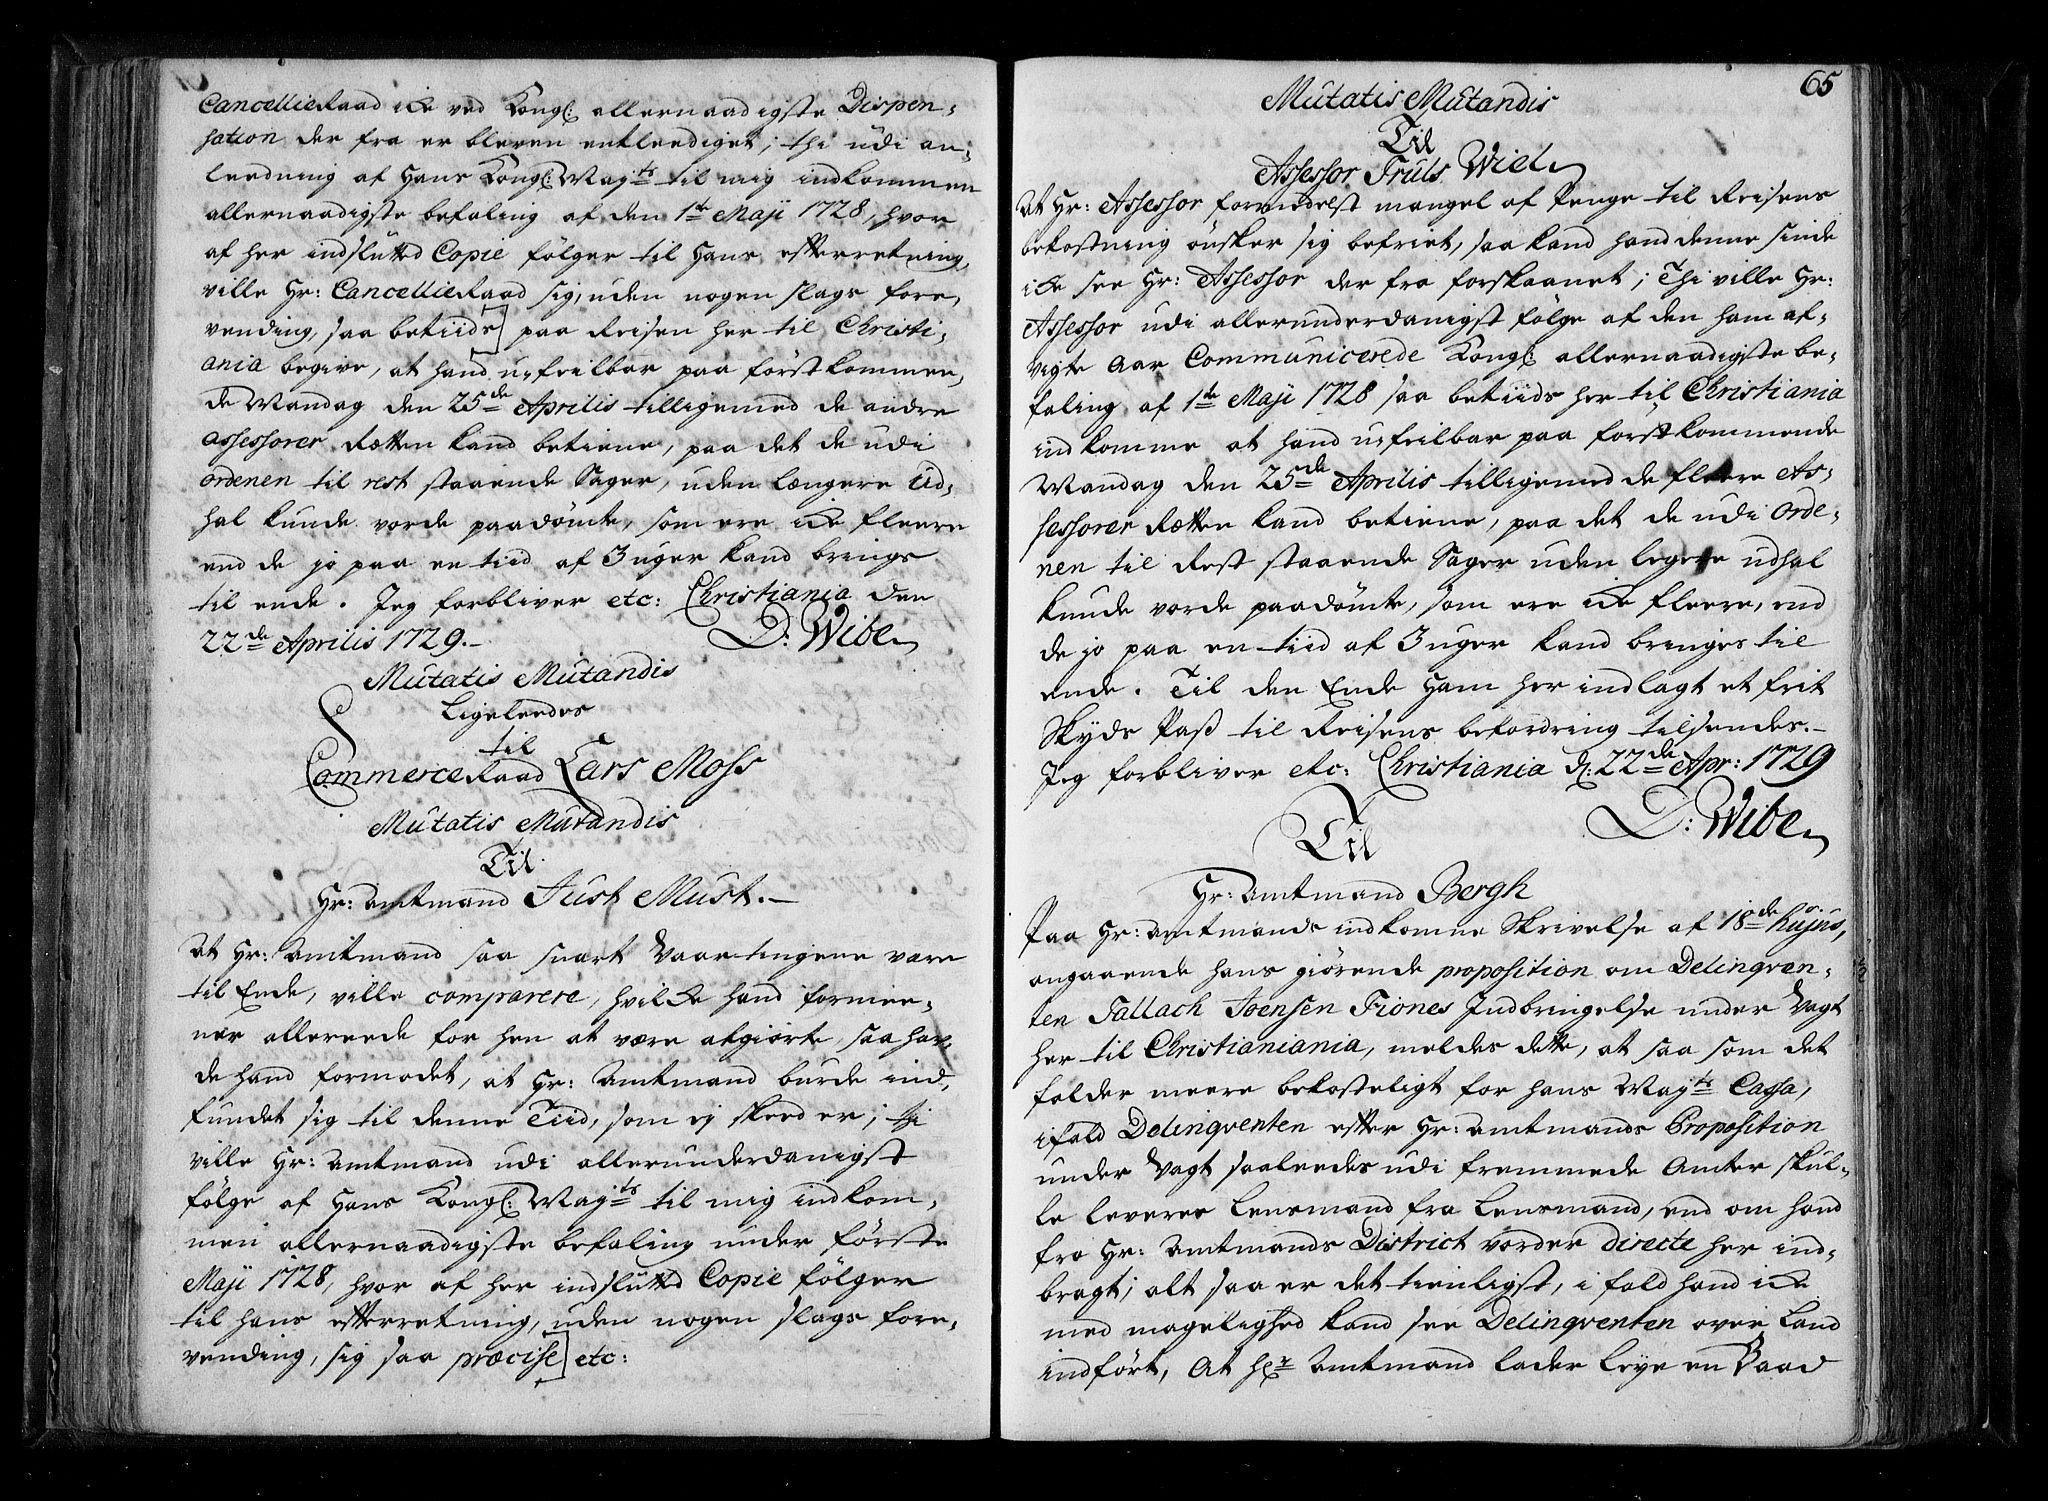 CancellieRaad icke ved Kongl: allernaadigste Dispen-
sation der fra er bleven entleediget; thi udi an-
leedning af Hans Kongl: Mayts til mig indkommen
allernaadigste befaling af den 1te Maji 1728, hvor
af her indslutted Copie fölger til Hans efterretning,
ville Hr: CancellieRaad sig, uden nogen slags fore-
vending, saa betiids] paa Reisen her til Christi-
ania begive, at hand u-feilbar paa förstkommen-
de Mandag den 25de Aprilis tilligemed de andre
assessorer Rætten kand betiene, paa det de udi
ordenen til rest staaende Sager, uden længere Ud-
hal kunde vorde paadömte, som ere icke fleere
end de jo paa en tiid af 3 uger kand brings
til ende. Jeg forbliver etc: Christiania den
22de Aprilis 1729.- D: Wibe
Mutatis Mutandis
Ligeleedes
til
CommerceRaad Lars Moss
Mutatis Mutandis
Til
Hr: Amtmand Just Must.-
At Hr: Amtmand saa snart Vaartingene vare
til Ende, ville comparere, hvilcke hand formee-
ner allereede for hen at være afgiorte, saa hav-
de hand formodet, at Hr: Amtmand burde ind-
fundet sig til denne Tiid, som ej skeed er; thi
ville Hr: Amtmand udi allerunderdanigst
fölge af Hans Kongl: Mayts til mig indkom-
men allernaadigste befaling under förste
Maji 1728, hvor af her indslutted Copie fölger
til hans efterretning, uden nogen slags fore-
vending, sig saa præcise] etc:
65
Mutatis Mutandis
Til
Assessor Truls Wiel
At Hr: Assessor formedelst mangel af Penge til Reisens
bekostning önsker sig befriet, saa kand hand denne sinde
icke see Hr: Assessor der fra forskaanet; Thi ville Hr:
Assessor udi allerunderdanigst fölge af den ham af-
vigte Aar Communicerede Kongl: allernaadigste be-
faling af 1te Maji 1728 saa betiids her til Christiania
indkomme at hand u-feilbar paa förstkommende
Mandag den 25de Aprilis tilligemed de fleere As-
sessorer Rætten kand betiene, paa det de udi Orde-
nen til Rest staaende Sager uden legere udhal
kunde vorde paadömte, som ere icke fleere, end
de jo paa en tiid af 3 uger kand bringes til
ende. Til den Ende Ham her indlagt et frit
Skyds Pass til Reisens befordring tilsendes.-
Jeg forbliver etc: Christiania d: 22de Apr: 1729
D: Wibe
Til
Hr: Amtmand Bergh
Paa Hr: Amtmands indkomne Skrivelse af 18de hujus,
angaaende hans giörende proposition om Delinqven-
ten Tallach Joensen Fiones Indbringelse under Vagt
her til Christianiania, meldes dette, at saa som det
falder meere bekosteligt for hans Mayts Cassa,
ifald Delinqventen efter Hr: Amtmands Proposition
under Vagt saaleedes udi fremmede Amter skul-
le leveres Lensmand fra Lensmand, end om hand
fra Hr: Amtmands District vorder directe her ind-
bragt; alt saa er det tienligst, i fald hand icke
med magelighed kand see Delinqventen over Land
indfört, At Hr Amtmand lader leye en Baad